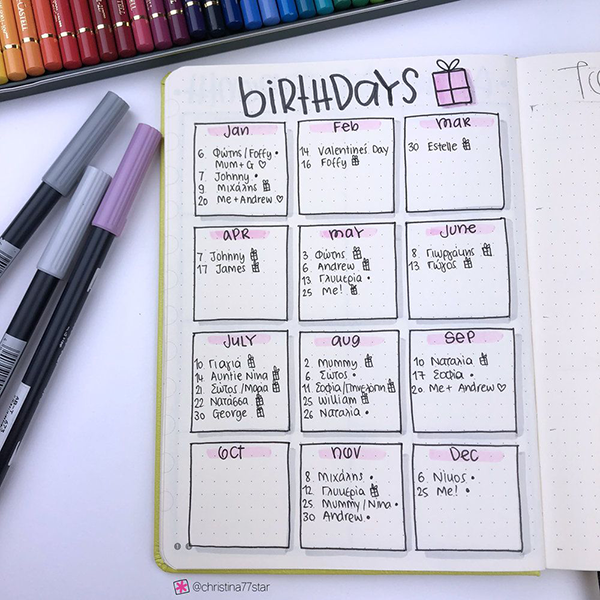 BIRTHDAYS
Jan
6 Φώτης/Foffy •
Mum+G ♡
7 Johnny •
9 Μιχάλης
20 Me+Andrew ♡
Feb
14 Valentines Day
16 Foffy
Mar
30 Estelle
Apr
7 Johnny
17 James
May
3 Φώτης
6 Andrew
13 Γλυκερία •
25 Me!
June
8 Γιωργάκης
13 Γιώγος
July
10 Γιαγιά
14 Auntie Nina
21 Σώτος/Μαρία
22 Νατάσσα
30 George
Aug
2 Mummy
6 Σώτος •
11 Σοφία/Πηνελόπη
25 William
26 Ναταλία •
Sep
10 Ναταλία
17 Σοφία •
20 Me+Andrew ♡
Oct
Nov
8 Μιχάλης •
12 Γλυκερία
25 Mummy/Nina •
30 Andrew •
Dec
6 Νίκος •
25 Me! •
@christina77star